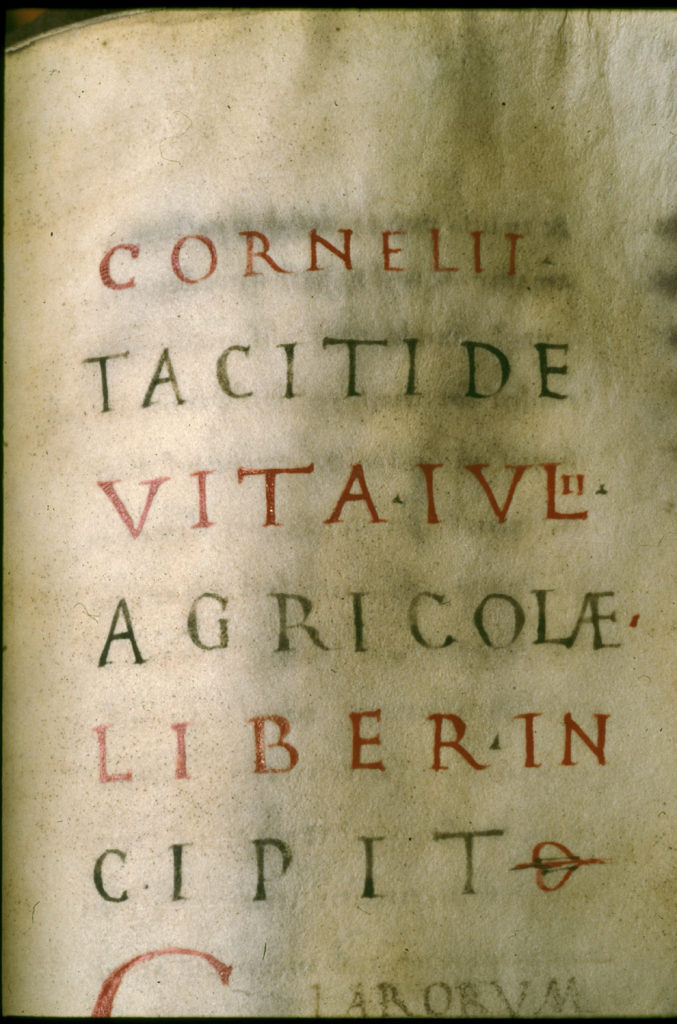 CORNELII
TACITI DE
VITA · IVLII ·
AGRICOLÆ ·
LIBER · IN
CIPIT
CLARORVM